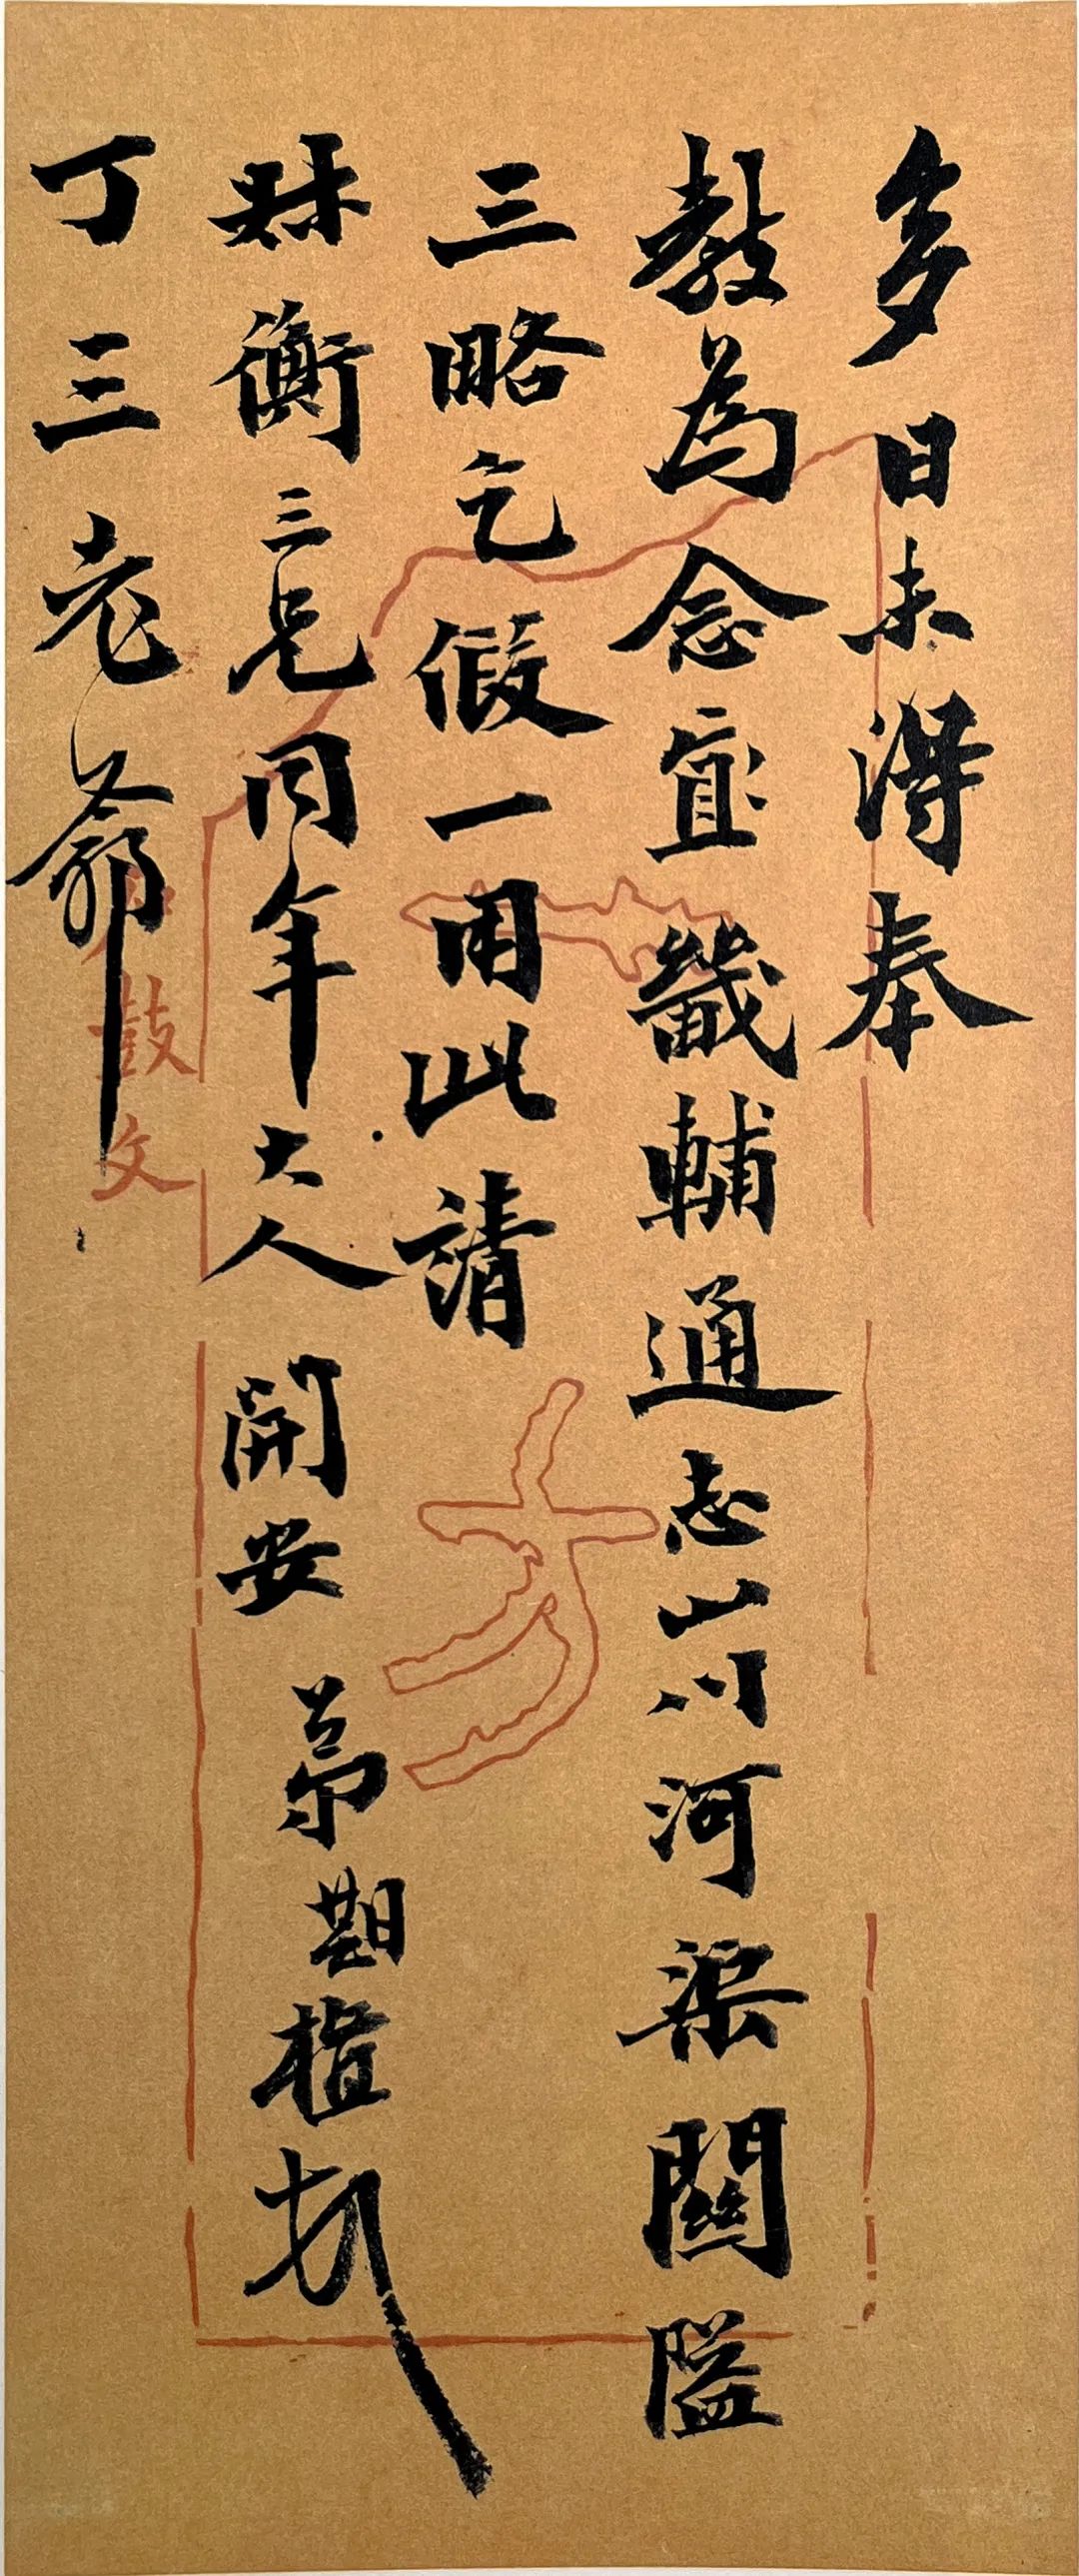 多日未得奉
教為念宜畿輔通志山川河渠關隘
三略乞假一用此請
衡三兄同年大人 開安 弟期楷
丁三老爺
鼓文